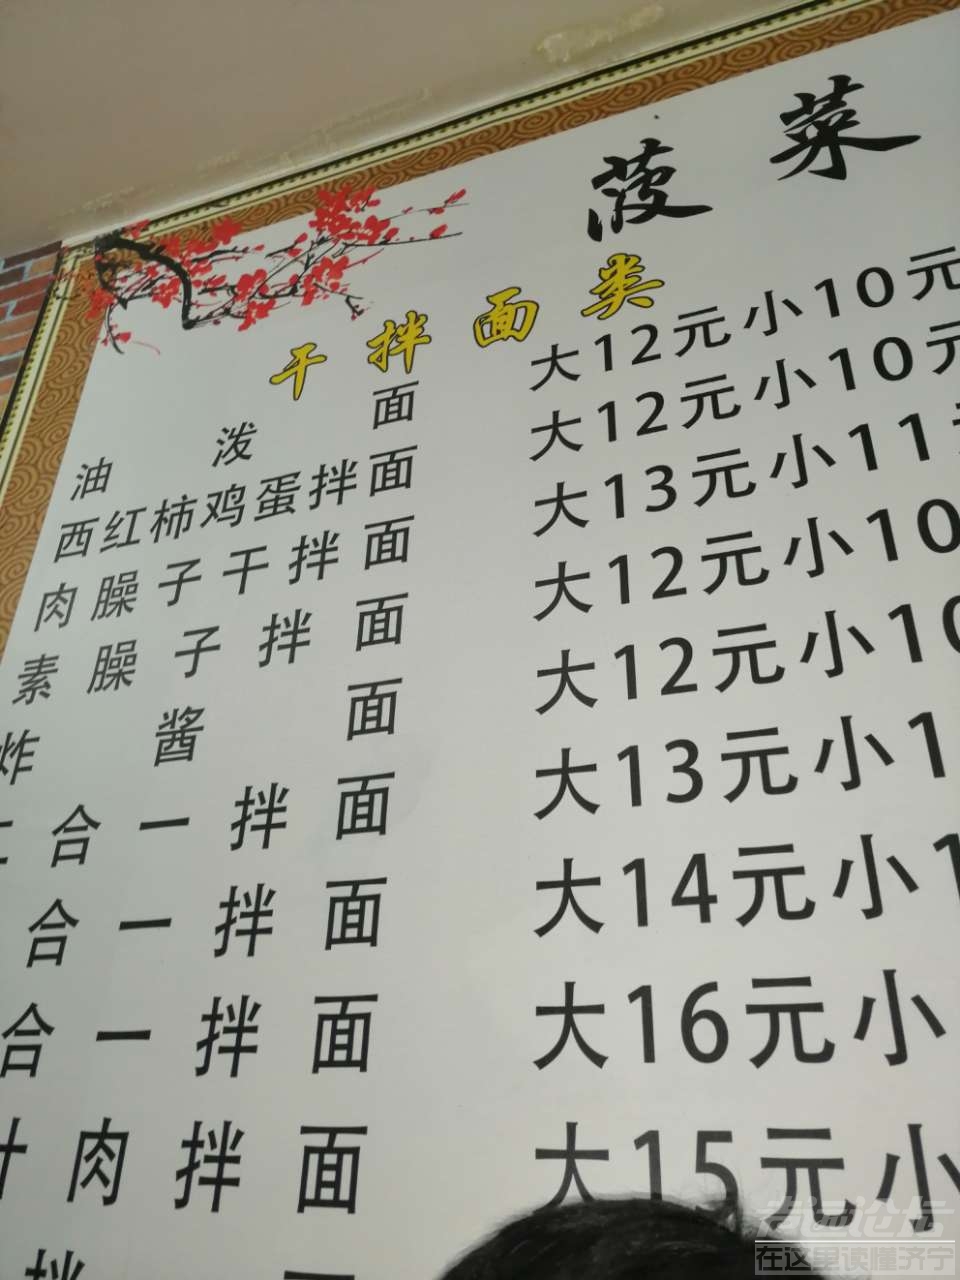 菠菜
干拌面类
油泼面 大12元小10元
西红柿鸡蛋拌面 大12元小10元
肉臊子干拌面 大13元小11
素臊子拌面 大12元小10
炸酱面 大12元小10
合一拌面 大13元小1
合一拌面 大14元小1
合一拌面 大16元小
肉拌面 大15元小
拌
在这里读懂济宁